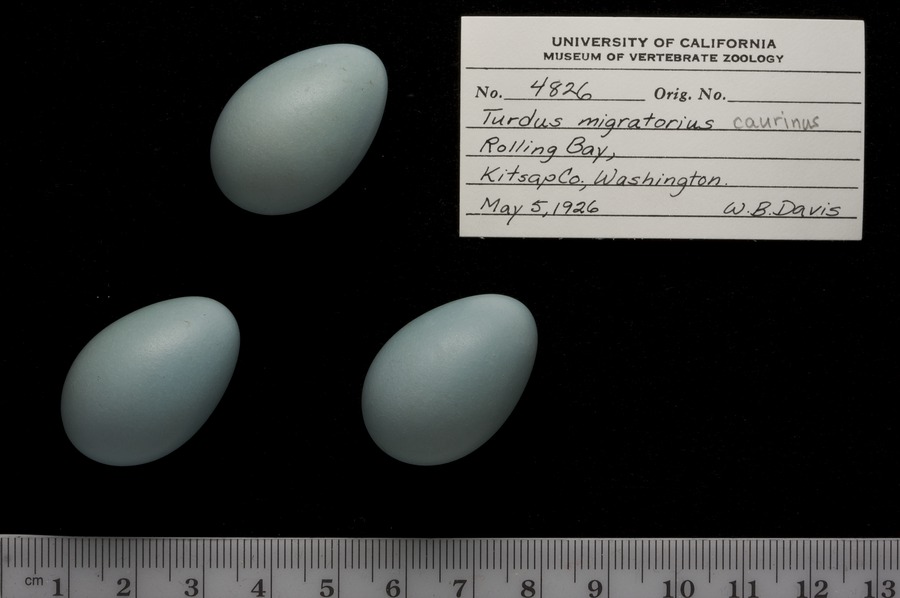 UNIVERSITY OF CALIFORNIA
MUSEUM OF VERTEBRATE ZOOLOGY
No. 4826 Orig. No.
Turdus migratorius caurinus
Rolling Bay,
Kitsap Co., Washington.
May 5, 1926 W.B. Davis
cm 1 2 3 4 5 6 7 8 9 10 11 12 13